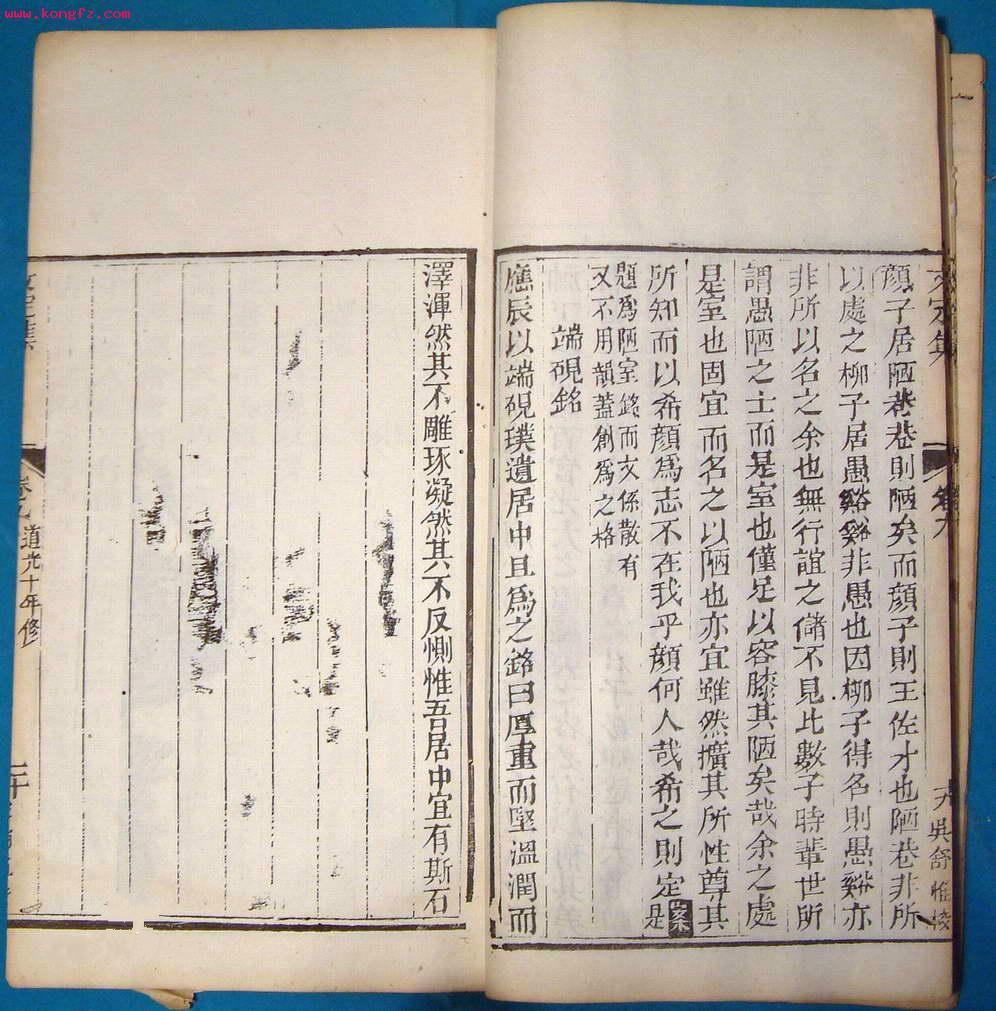 www.kongfz.com
文定集
卷九
顏子居陋巷巷則陋矣而顏子則王佐才也陋巷非所
以處之柳子居愚谿谿非愚也因柳子得名則愚谿亦
非所以名之余也無行誼之儲不見比數于時輩世所
謂愚陋之士而是室也僅足以容膝其陋矣哉余之處
是室也固宜而名之以陋也亦宜雖然擴其所性尊其
所知而以希顏為志不在我乎顏何人哉希之則定案是
題為陋室銘而文係散有
又不用韻蓋創為之格
端硯銘
應辰以端硯璞遺居中且為之銘曰厚重而堅溫潤而
澤渾然其不雕琢凝然其不反惻惟吾居中宜有斯石
文定集
卷九
道光十年修
二十